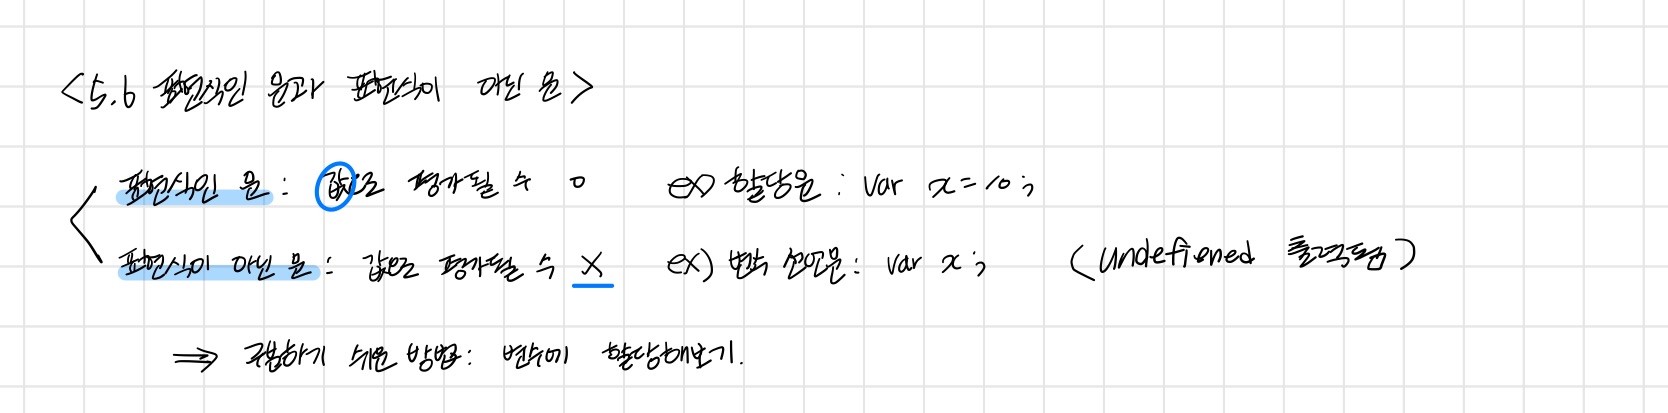 <5.6 표현식인 문과 표현식이 아닌 문>
표현식인 문 : 값으로 평가될 수 O ex) 할당문 : var x = 10;
표현식이 아닌 문 : 값으로 평가될 수 X ex) 변수 선언문 : var x; (undefioned 출력됨)
⇒ 구분하기 쉬운 방법 : 변수에 할당해보기.